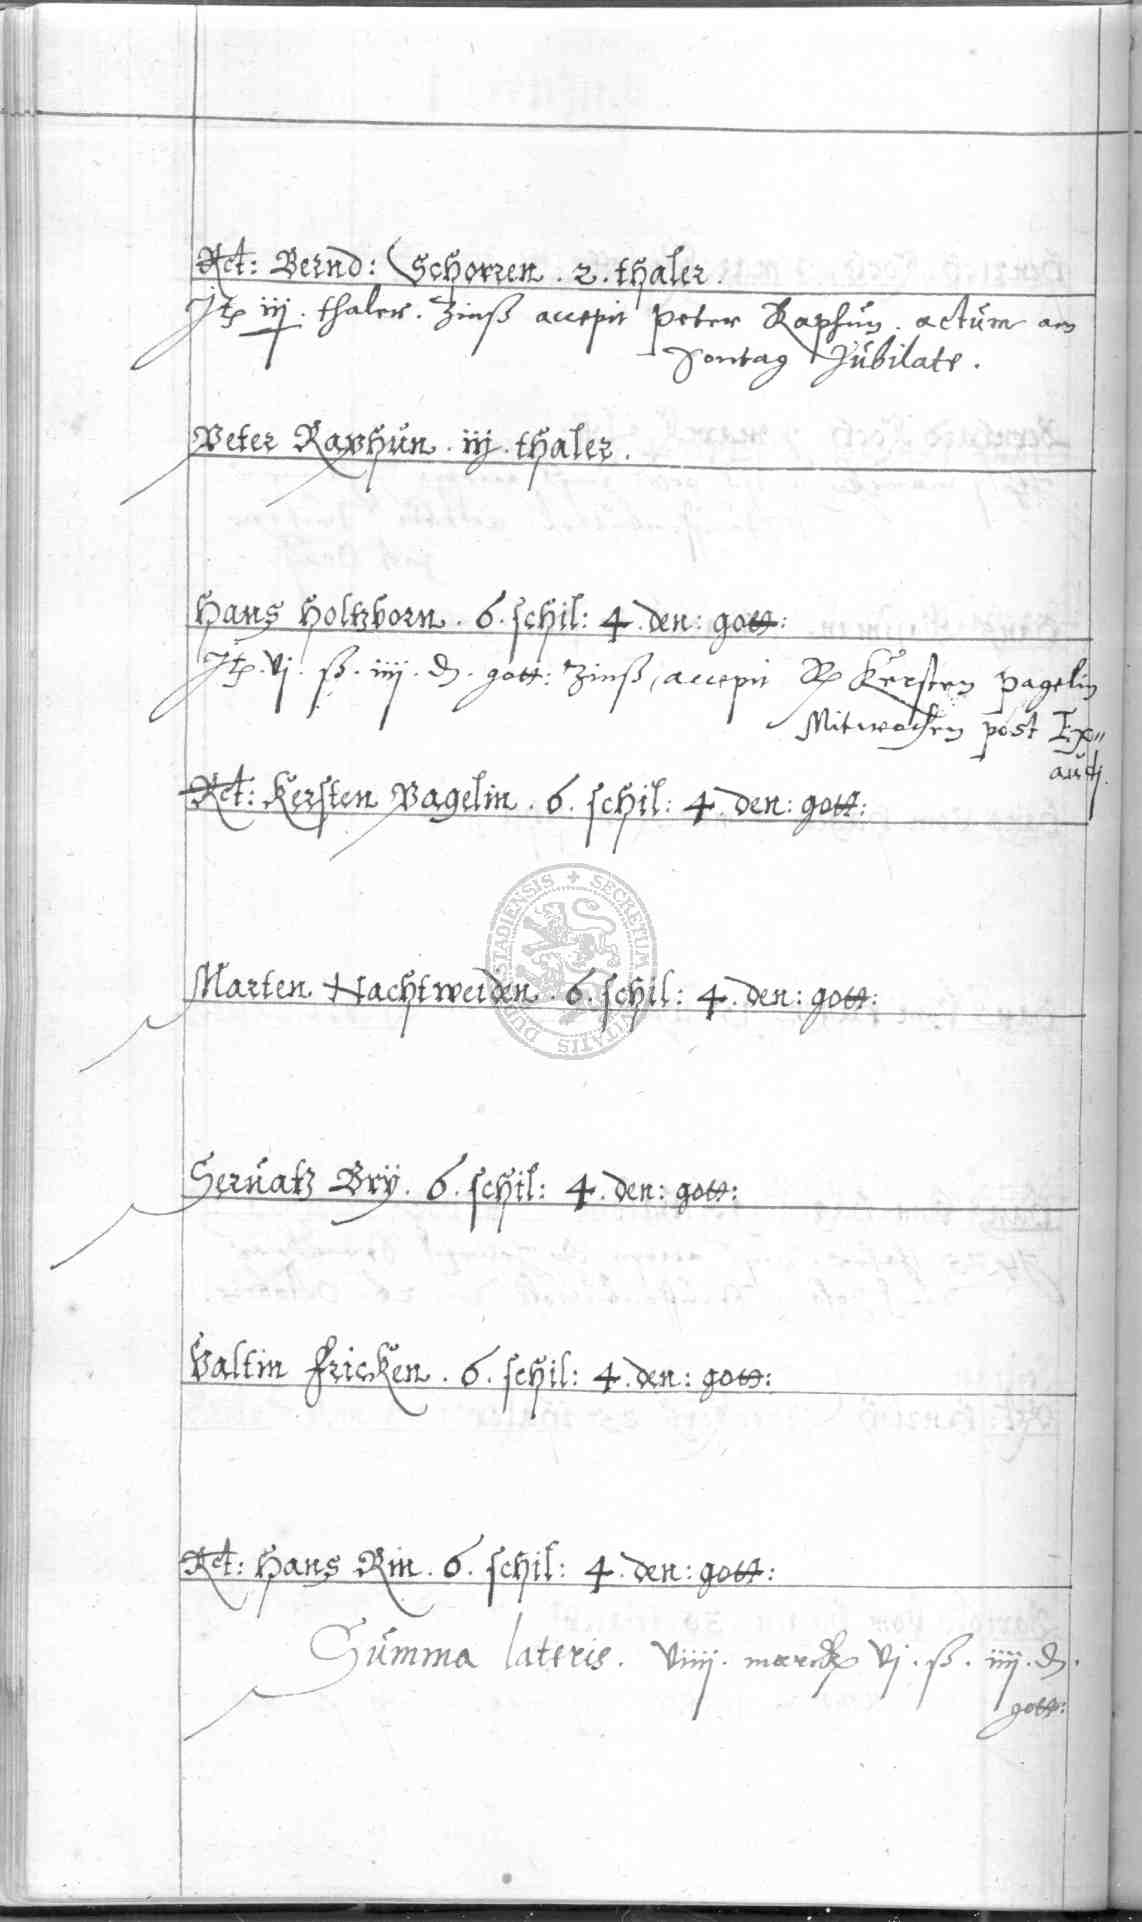 Rct: Bernd: Schorren . 2 . thaler .
Itp iij . thaler . Zinß accepit peter Raphün . actüm am
Sontag Jübilate .
Peter Raphün . iij . thaler .
Hans Holtzborn . 6 . schil: 4 . den: gott:
Itp . vj . ß . iiij . d . gott: Zinß , accepit Kersten pagelin
Mitwochen post Ex„
audj .
Rct: Kersten Pagelin . 6 . schil: 4 . den: gott:
SECRETUM CIVITATIS DUDERSTADIENSIS
Marten Nachtweiden . 6 . schil: 4 . den: gott:
Servatz Brÿ . 6 . schil: 4 . den: gott:
Valtin Fricken . 6 . schil: 4 . den: gott:
Rct: Hans Rin . 6 . schil: 4 . den: gott:
Sümma lateris . viiij . marck vj . ß . iiij . d .
gott: